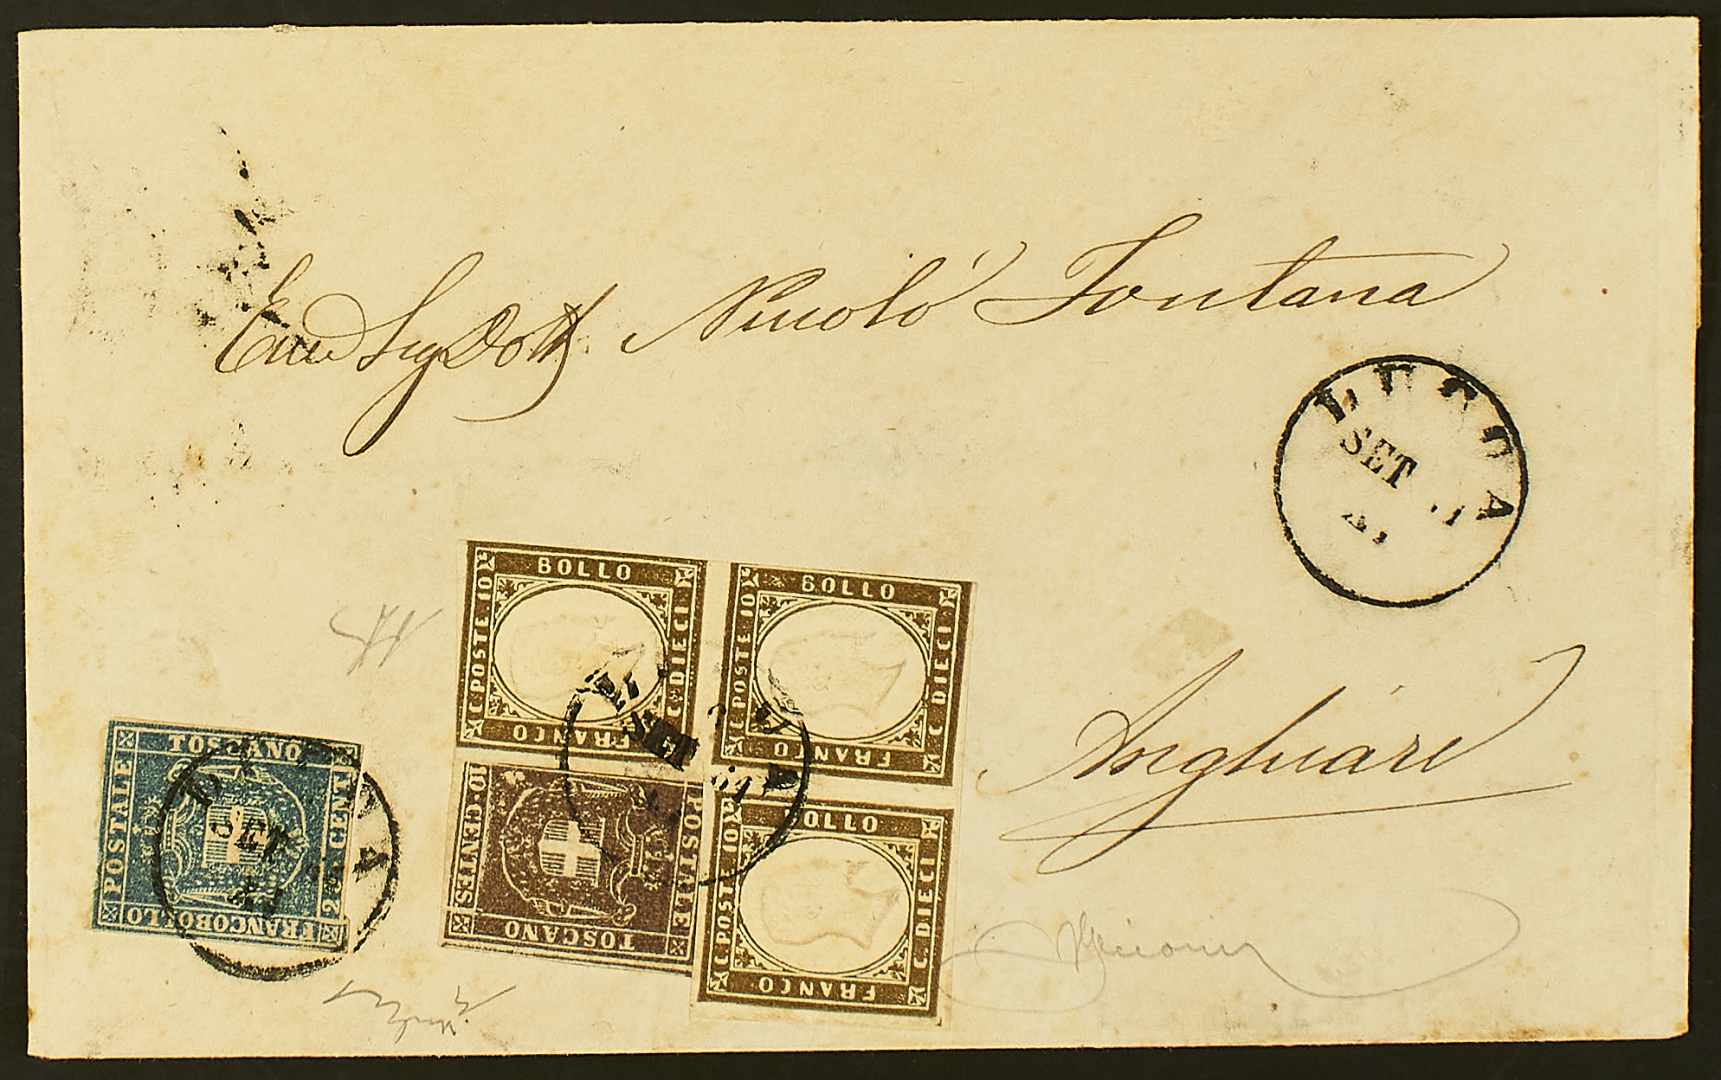 Sig Dott Niccolò Fontana
LUCCA
SET
Anghiari
BOLLO
C. POSTE 10
C. DIECI
FRANCO
BOLLO
C. POSTE 10
C. DIECI
FRANCO
TOSCANO
POSTALE
CENT
FRANCOBOLLO
SET
10 CENTES.
POSTALE
TOSCANO
SET
OLLO
C. POSTE 10
C. DIECI
FRANCO